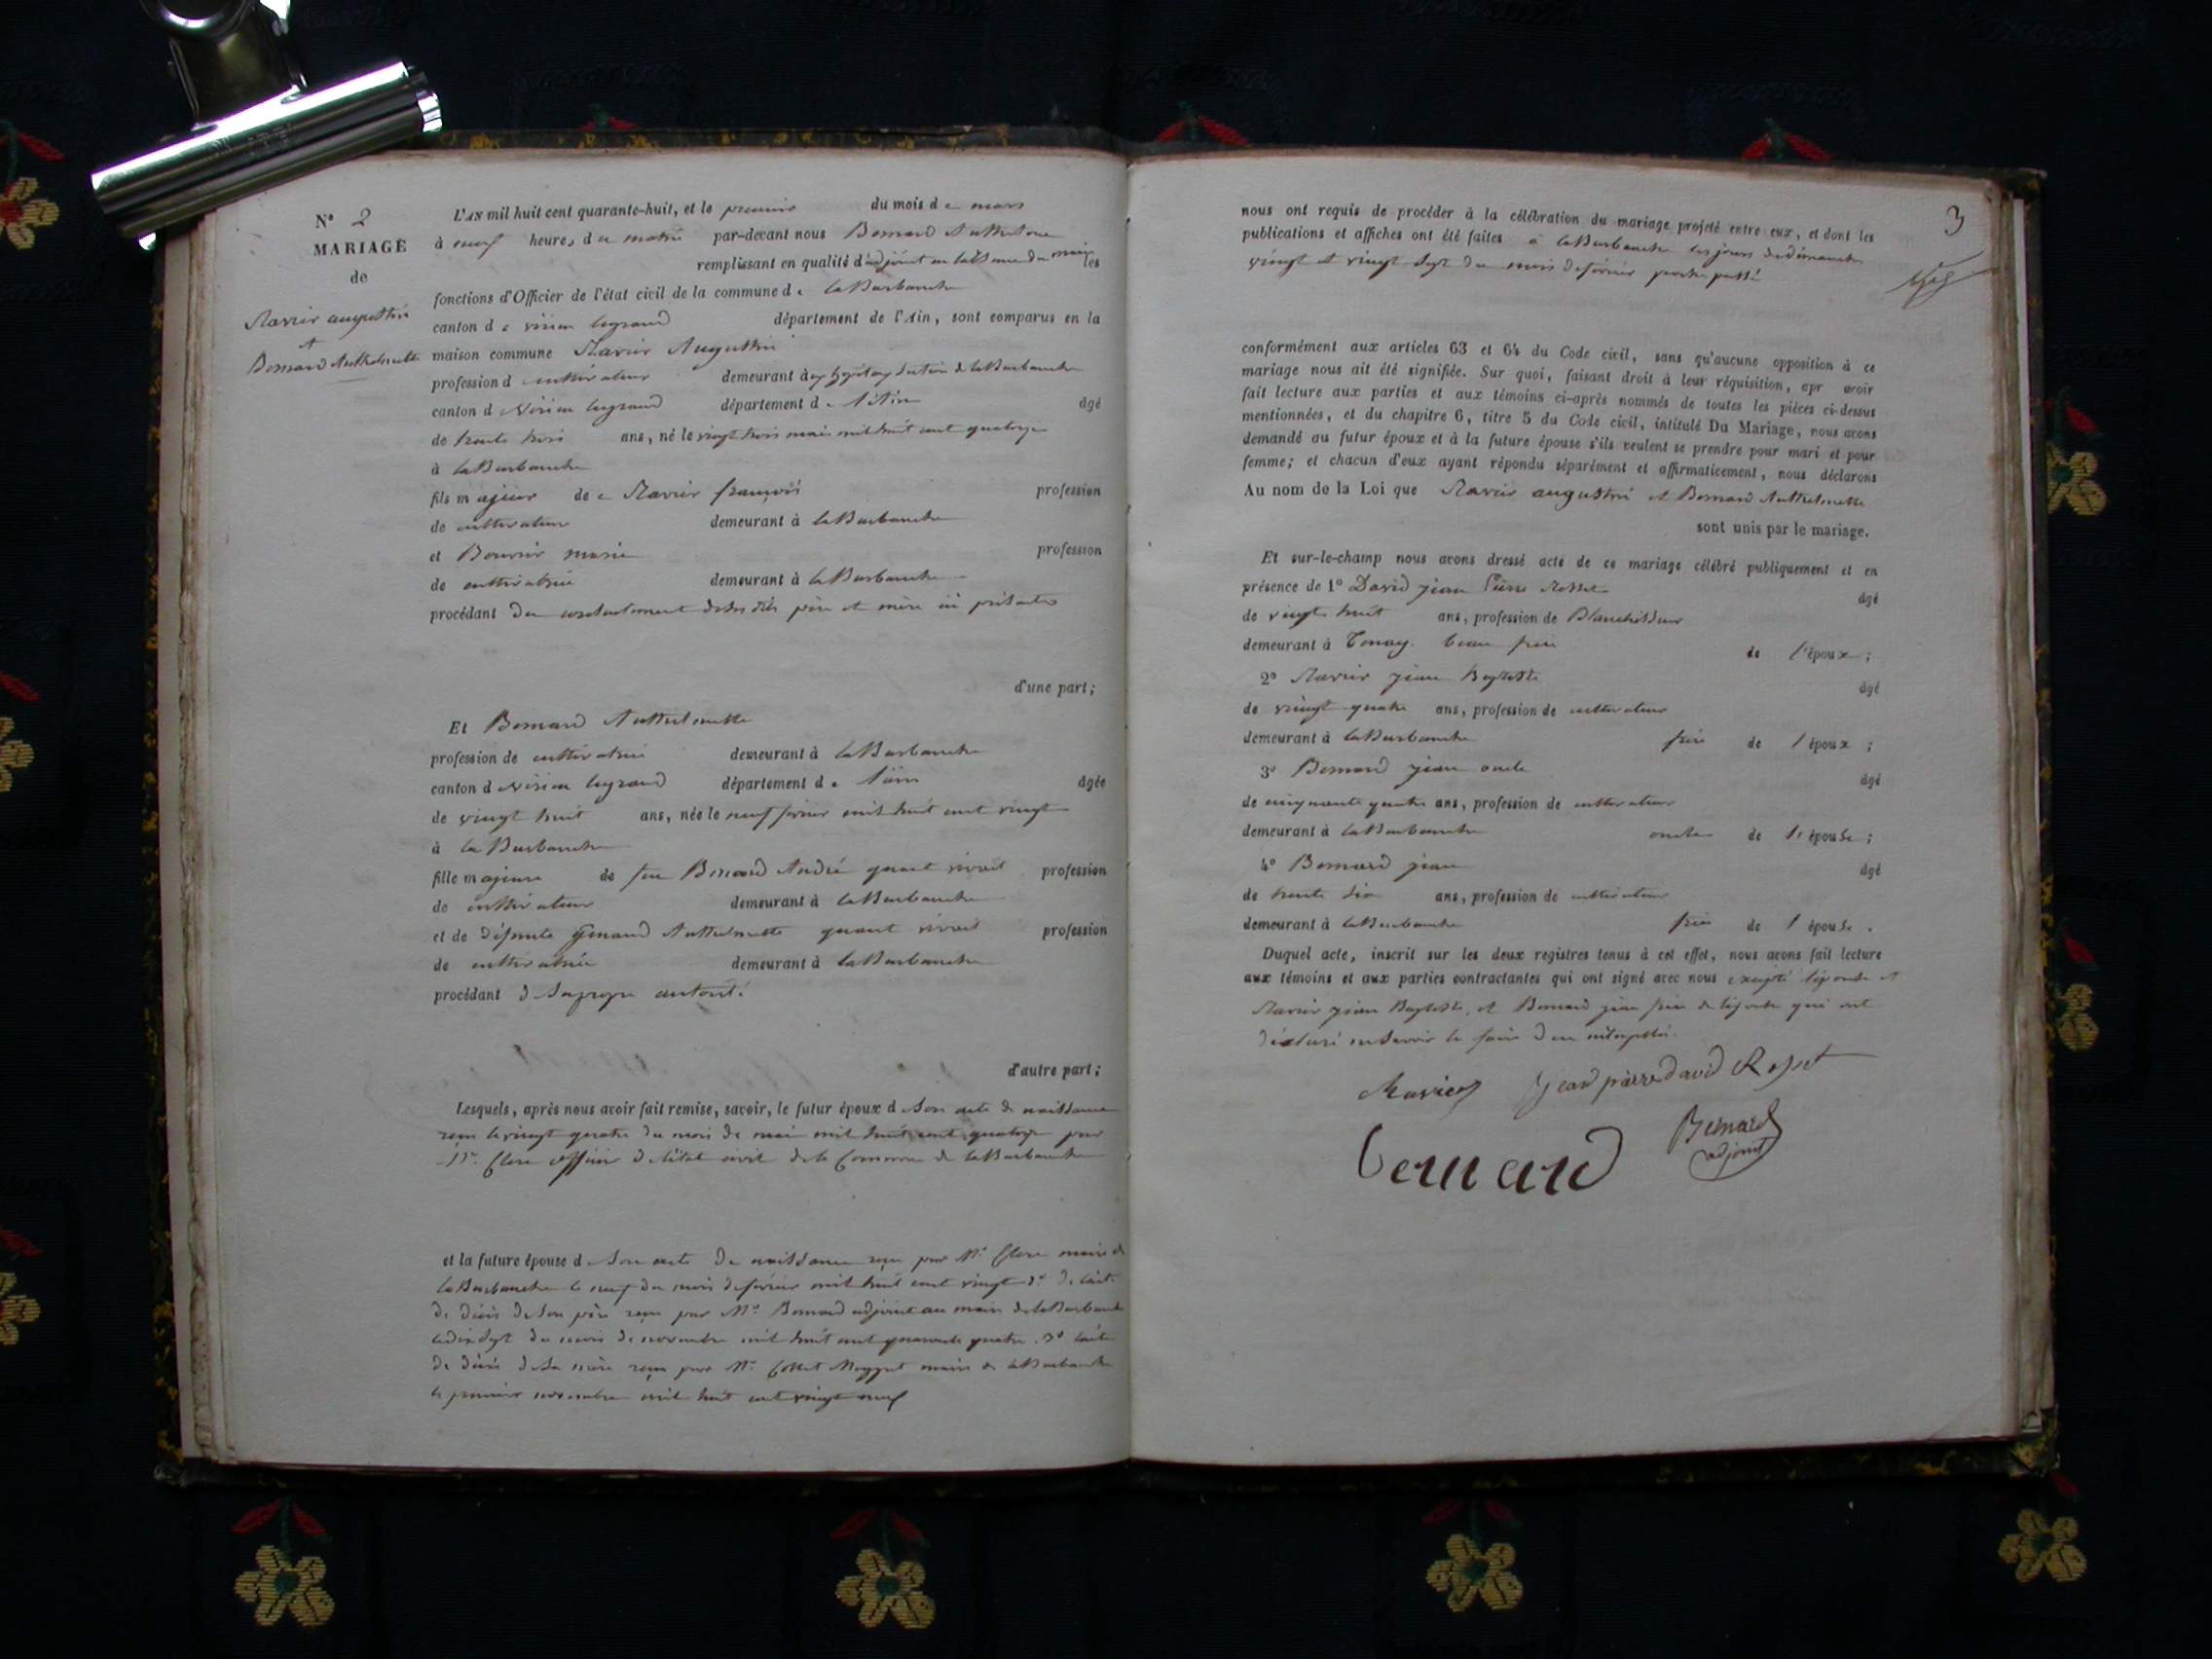 N° 2
MARIAGE
de
Ravier augustin
et
Bernard Anthelmette
L'AN mil huit cent quarante-huit, et le premier du mois de mars
à neuf heures du matin par-devant nous Bernard Anthelme
remplissant en qualité d'adjoint en l'absence du maire les
fonctions d'Officier de l'état civil de la commune de la Burbanche
canton de virieu legrand département de l'Ain, sont comparus en la
maison commune Ravier Augustin
profession d cultivateur demeurant à section de la Burbanche
canton de Virieu legrand département de l'Ain âgé
de trente trois ans, né le vingt trois mai mil huit cent quatorze
à la Burbanche
fils majeur de Ravier françois profession
de cultivateur demeurant à la Burbanche
et Bouvier marie profession
de cultivatrice demeurant à la Burbanche
procédant du consentement de ses dits père et mère ici présents
d'une part;
Et Bernard Anthelmette
profession de cultivatrice demeurant à la Burbanche
canton de Virieu legrand département de l'ain âgée
de vingt huit ans, née le neuf février mil huit cent vingt
à la Burbanche
fille majeure de feu Bernard André quand vivait profession
de cultivateur demeurant à la Burbanche
et de défunte Anthelmette quand vivait profession
de cultivatrice demeurant à la Burbanche
procédant de sa propre autorité
d'autre part;
Lesquels, après nous avoir fait remise, savoir, le futur époux de son acte de naissance
reçu le vingt quatre du mois de mai mil huit cent quatorze par
Mr. Clerc officier de l'état civil de la Commune de la Burbanche
et la future épouse de son acte de naissance reçu par Mr. Clerc maire de
la Burbanche le neuf du mois de février mil huit cent vingt 2° de l'acte
de décès de son père reçu par Mr. Bernard adjoint au maire de la Burbanche
le dix sept du mois de novembre mil huit cent quarante quatre. 3° l'acte
de décès de sa mère reçu par Mr. maire de la Burbanche
le premier novembre mil huit cent vingt neuf
3
nous ont requis de procéder à la célébration du mariage projeté entre eux, et dont les
publications et affiches ont été faites à la Burbanche les jours de dimanche
vingt et vingt sept du mois de février proche passé
conformément aux articles 63 et 64 du Code civil, sans qu'aucune opposition à ce
mariage nous ait été signifiée. Sur quoi, faisant droit à leur réquisition, apr avoir
fait lecture aux parties et aux témoins ci-après nommés de toutes les pièces ci-dessus
mentionnées, et du chapitre 6, titre 5 du Code civil, intitulé Du Mariage, nous avons
demandé au futur époux et à la future épouse s'ils veulent se prendre pour mari et pour
femme; et chacun d'eux ayant répondu séparément et affirmativement, nous déclarons
Au nom de la Loi que Ravier augustin et Bernard Anthelmette
sont unis par le mariage.
Et sur-le-champ nous avons dressé acte de ce mariage célébré publiquement et en
présence de 1° David jean Pierre Rosset âgé
de vingt huit ans, profession de Blanchisseur
demeurant à Tenay. beau frère de l'époux;
2° Ravier jean Baptiste âgé
de vingt quatre ans, profession de cultivateur
demeurant à la Burbanche frère de l'époux;
3° Bernard jean oncle âgé
de cinquante quatre ans, profession de cultivateur
demeurant à la Burbanche oncle de l'épouse;
4° Bernard jean âgé
de trente six ans, profession de cultivateur
demeurant à la Burbanche frère de l'épouse.
Duquel acte, inscrit sur les deux registres tenus à cet effet, nous avons fait lecture
aux témoins et aux parties contractantes qui ont signé avec nous excepté l'épouse et
Ravier jean Baptiste, et Bernard jean frère de l'épouse qui ont
déclaré ne savoir le faire
Ravier Jean pierre david Rosset
Bernard Bernard
adjoint